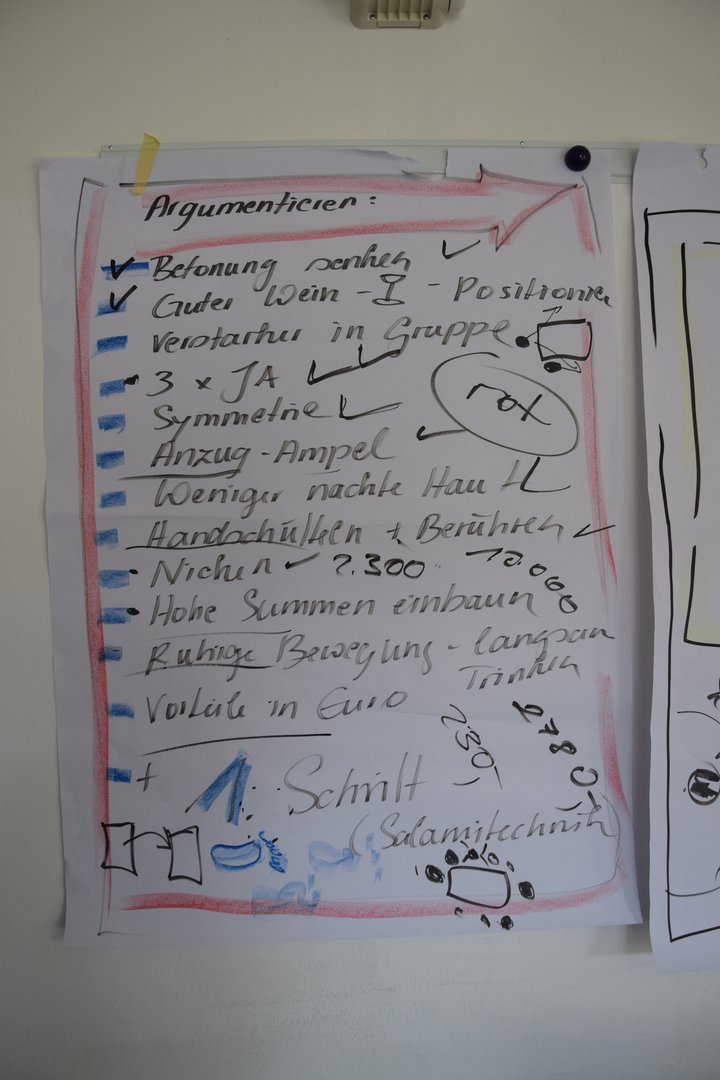 Argumentieren:
Betonung senken
Guter Wein - - Positionier
Verstärker in Gruppe
3 x JA
rot
Symmetrie
Anzug-Ampel
Weniger nackte Haut
Handschütteln + Berühren
Nicken 2.300 10.000
Hohe Summen einbaun
Ruhige Bewegung - langsam
Trinken
Vorteile in Euro
+ 1. Schritt
(Salamitechnik)